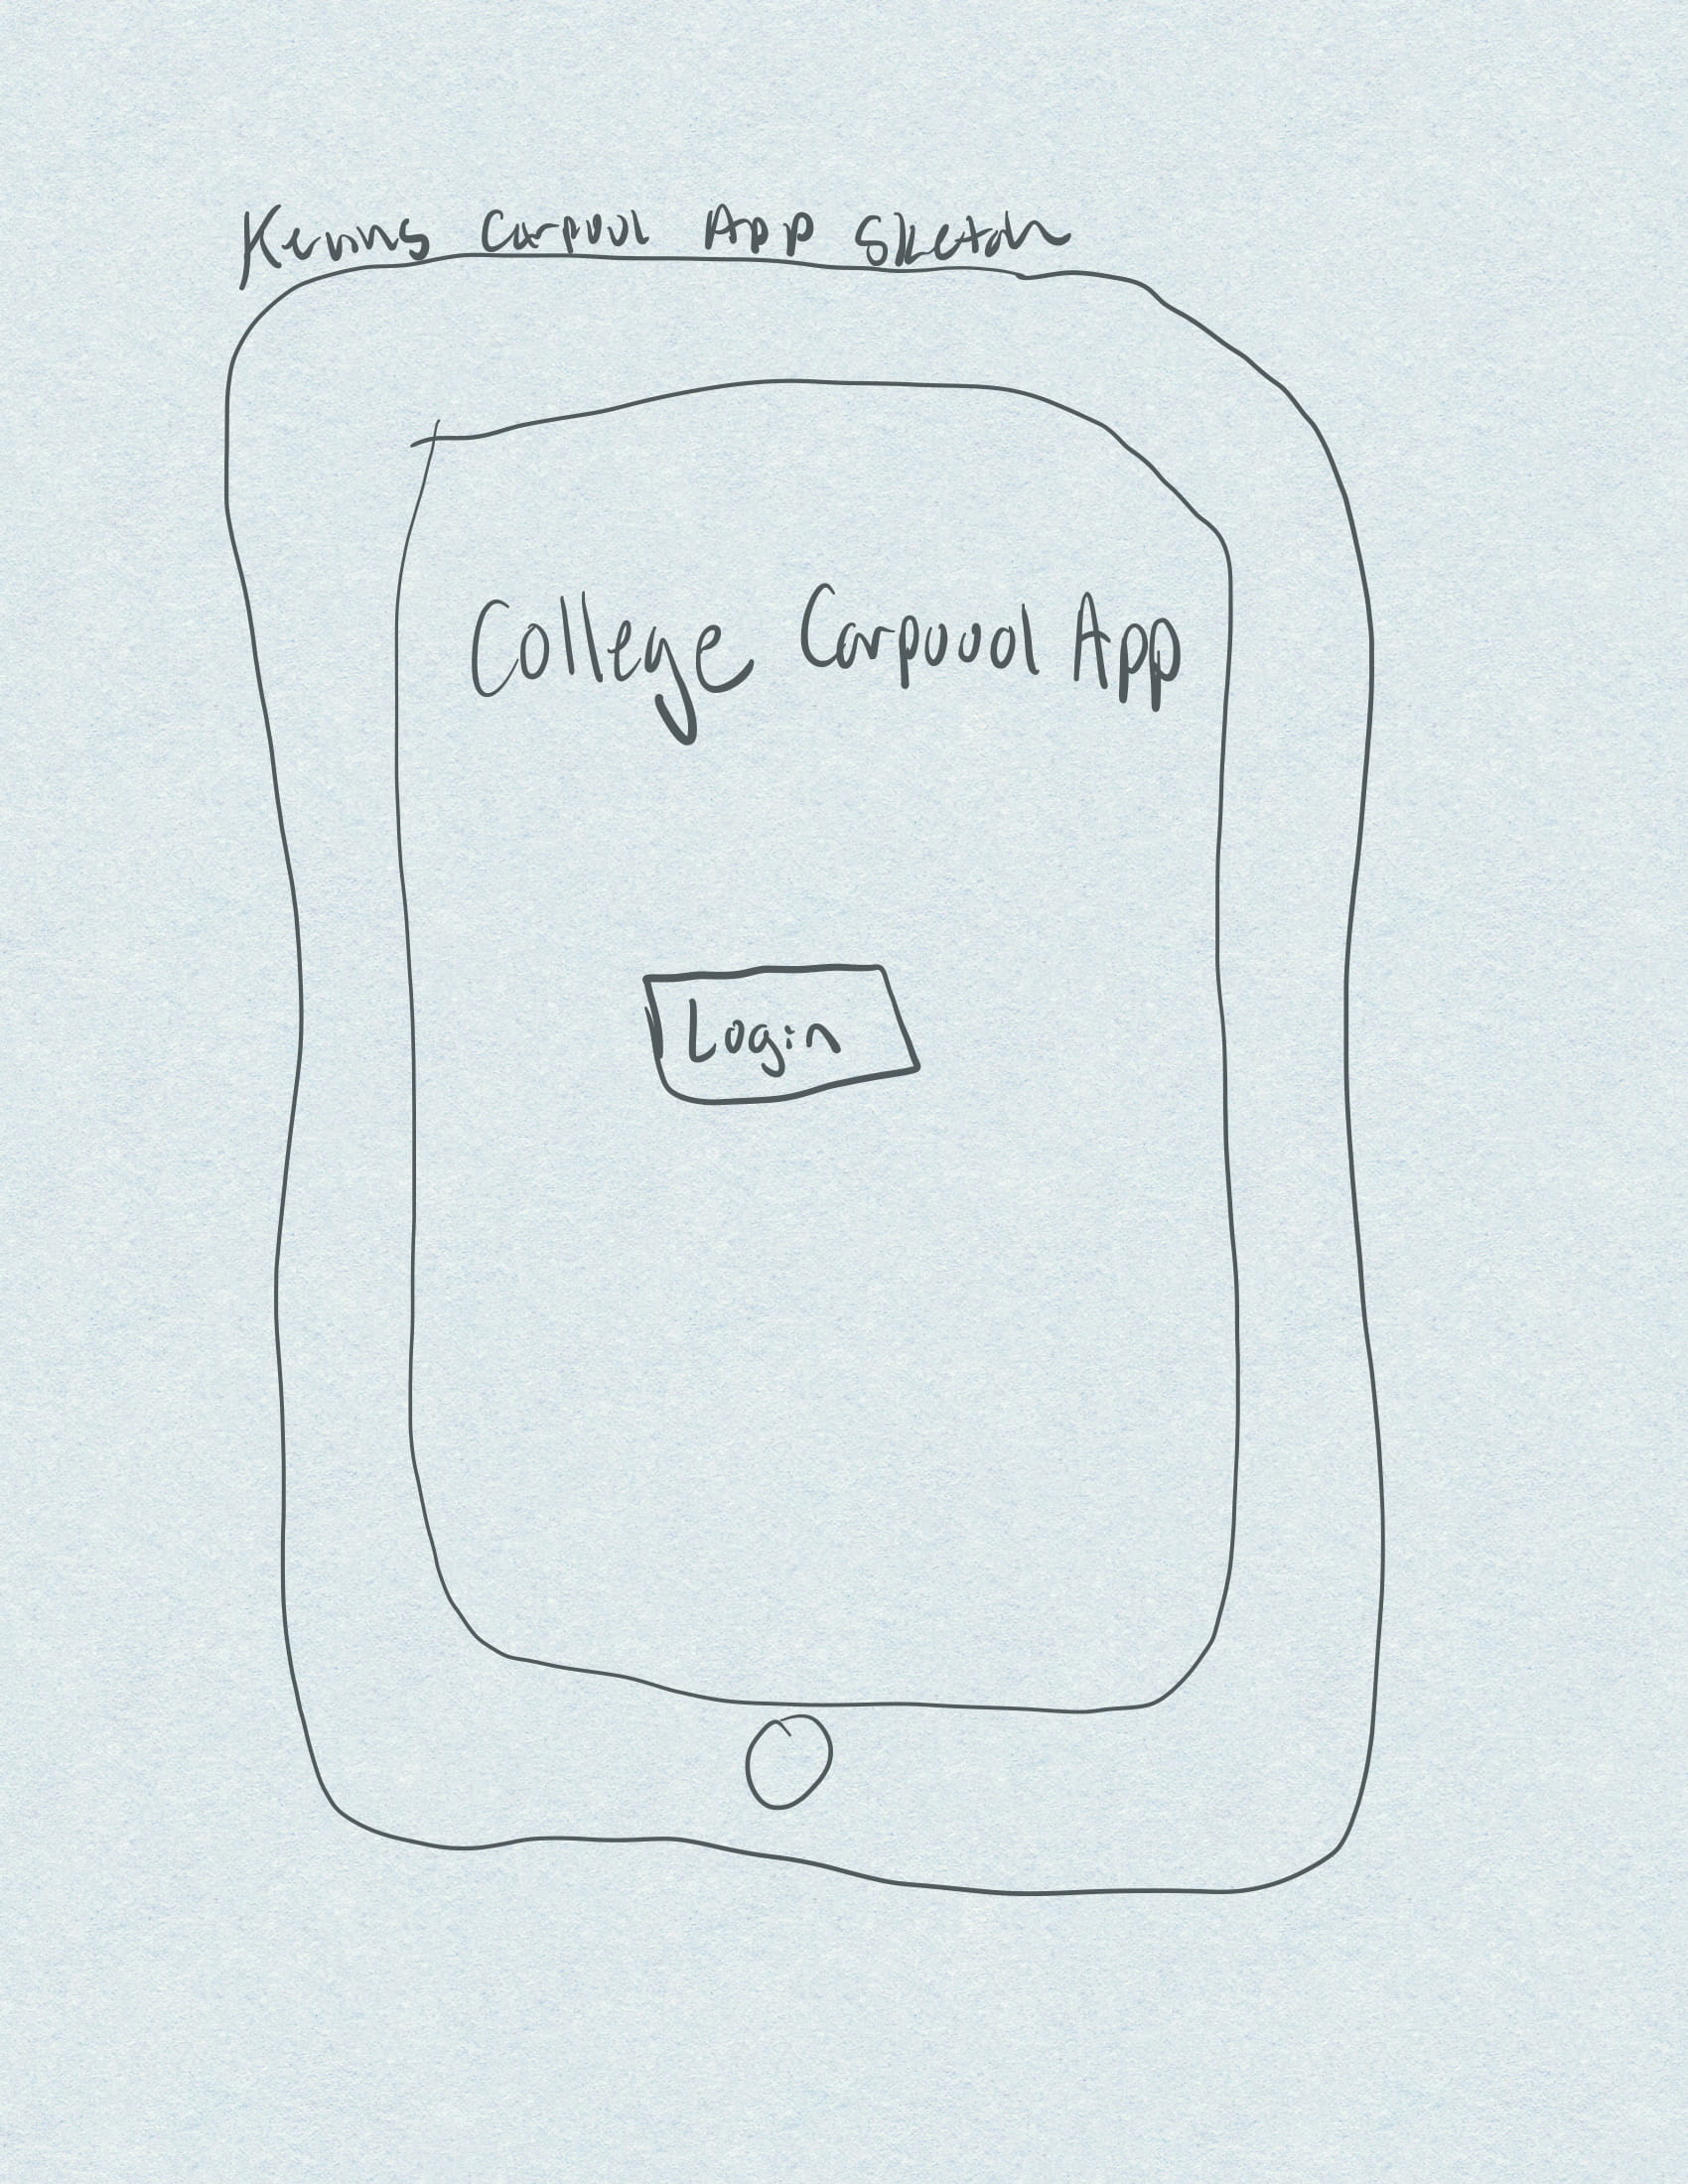 Kevins Carpool App Sketch
College Carpoool App
Login